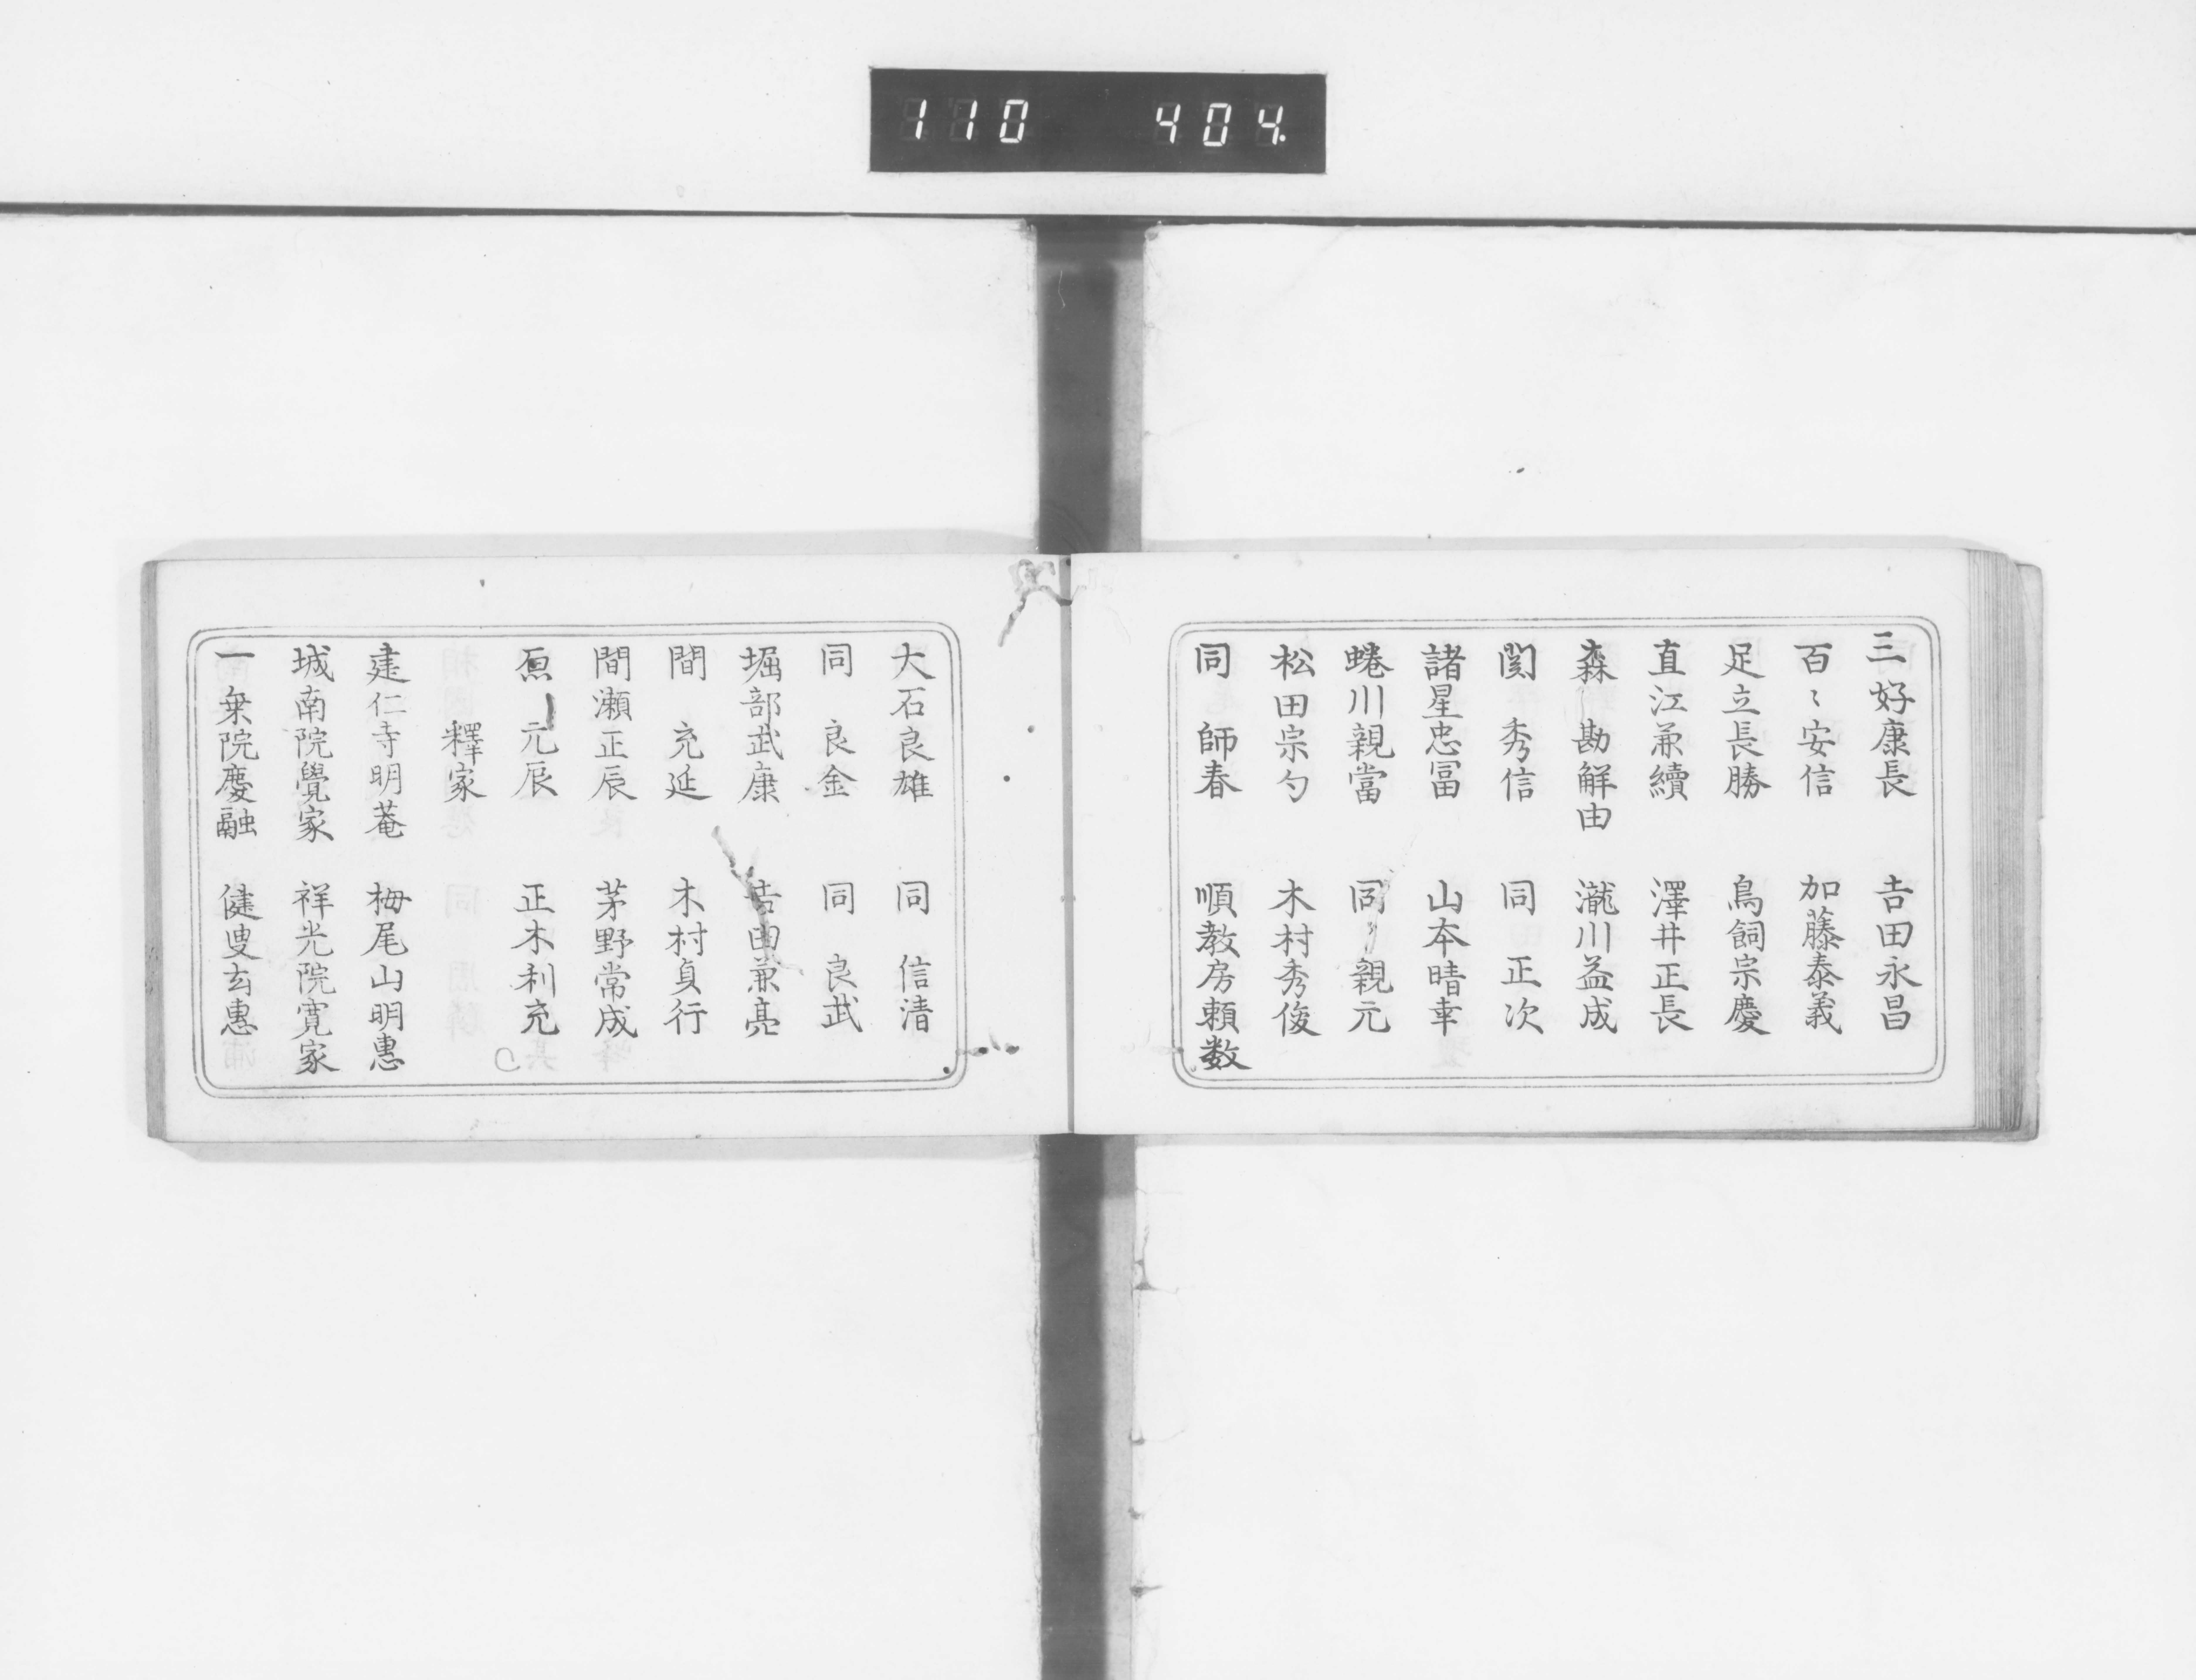 110 404
三好康長 吉田永昌
百〻安信 加藤泰義
足立長勝 鳥飼宗慶
直江兼續 澤井正長
森 勘解由 瀧川益成
関 秀信 同 正次
諸星忠冨 山本晴幸
蜷川親當 同 親元
松田宗勺 木村秀俊
同 師春 順教房頼数
大石良雄 同 信清
同 良金 同 良武
堀部武康 吉田兼亮
間 充延 木村貞行
間瀬正辰 茅野常成
原 元辰 正木利充
釋家
建仁寺明菴 栂尾山明惠
城南院覺家 祥光院寛家
一乗院慶融 健叟玄惠